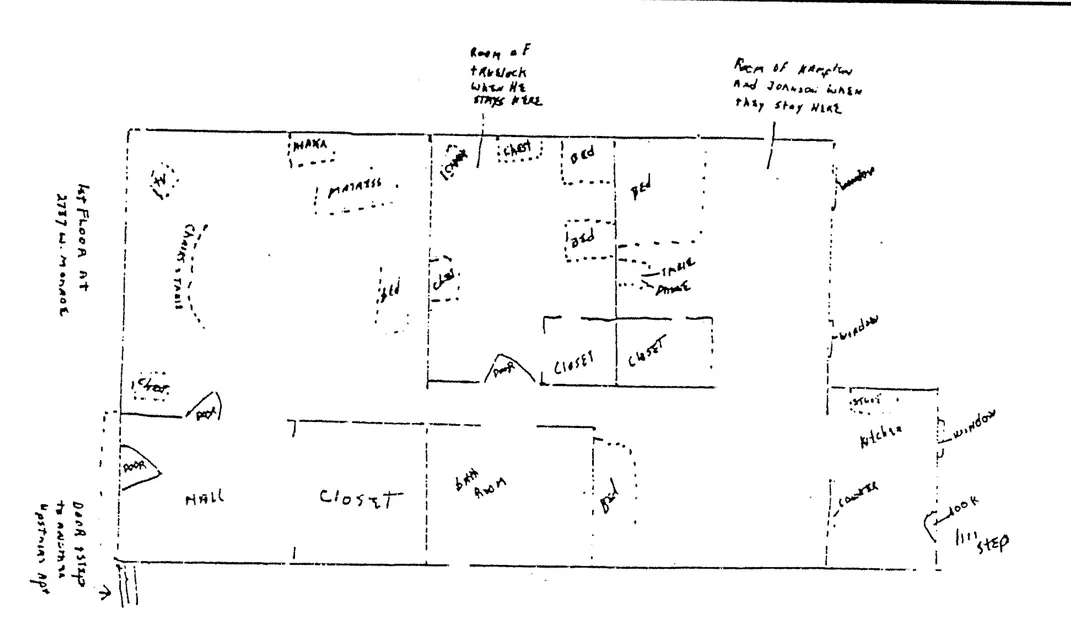 ROOM OF
TRUELOCK
WHEN HE
STAYS HERE
ROOM OF HAMPTON
AND JOHNSON WHEN
THEY STAY HERE
1ST FLOOR AT
2787 W. MONROE
CHAIRS & TABLE
MATRESS
BED
CHEST
DOOR
CHAIR
CHEST
BED
BED
CHEST
DOOR
CLOSET
BED
TABLE
CLOSET
WINDOW
WINDOW
STOVE
KITCHEN
WINDOW
COUNTER
DOOR
STEP
DOOR
HALL
CLOSET
BATH
ROOM
BED
DOOR & STEP
TO
UPSTAIRS APT